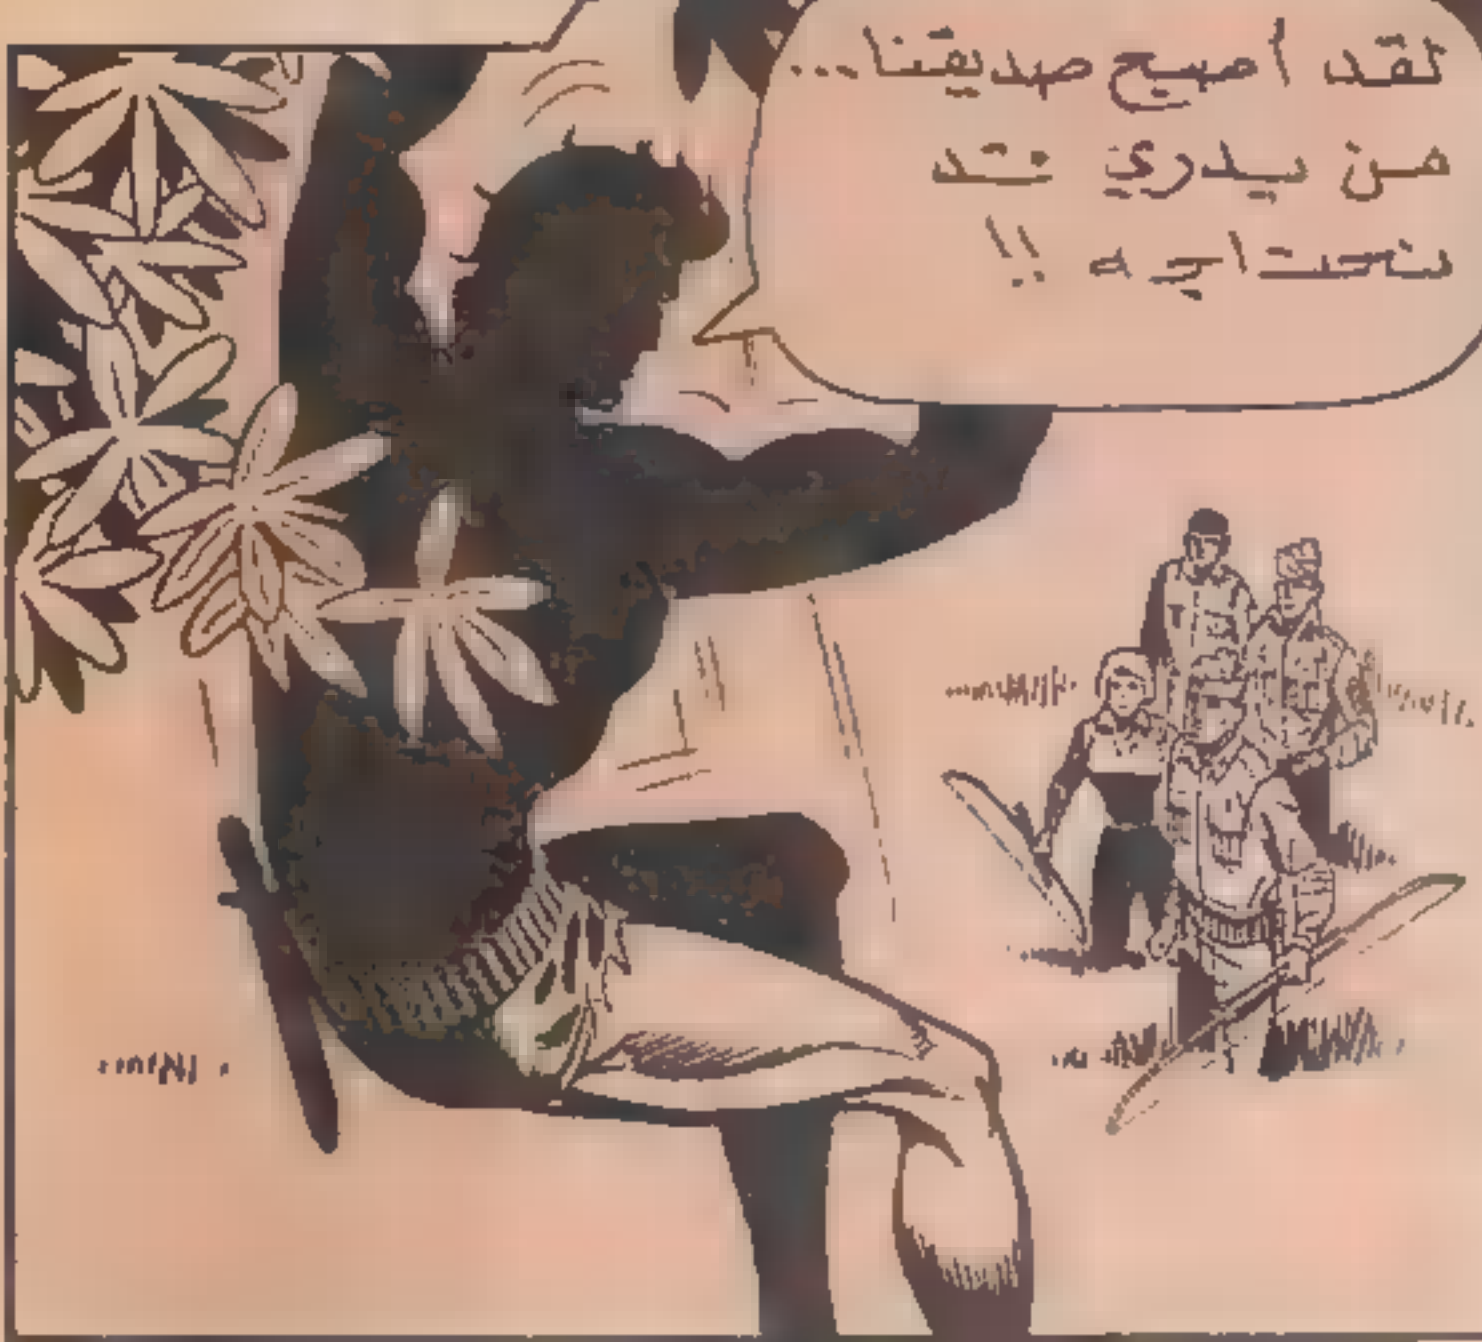 لقد أصبح صديقنا...
من يدري قد
نحتاجه !!